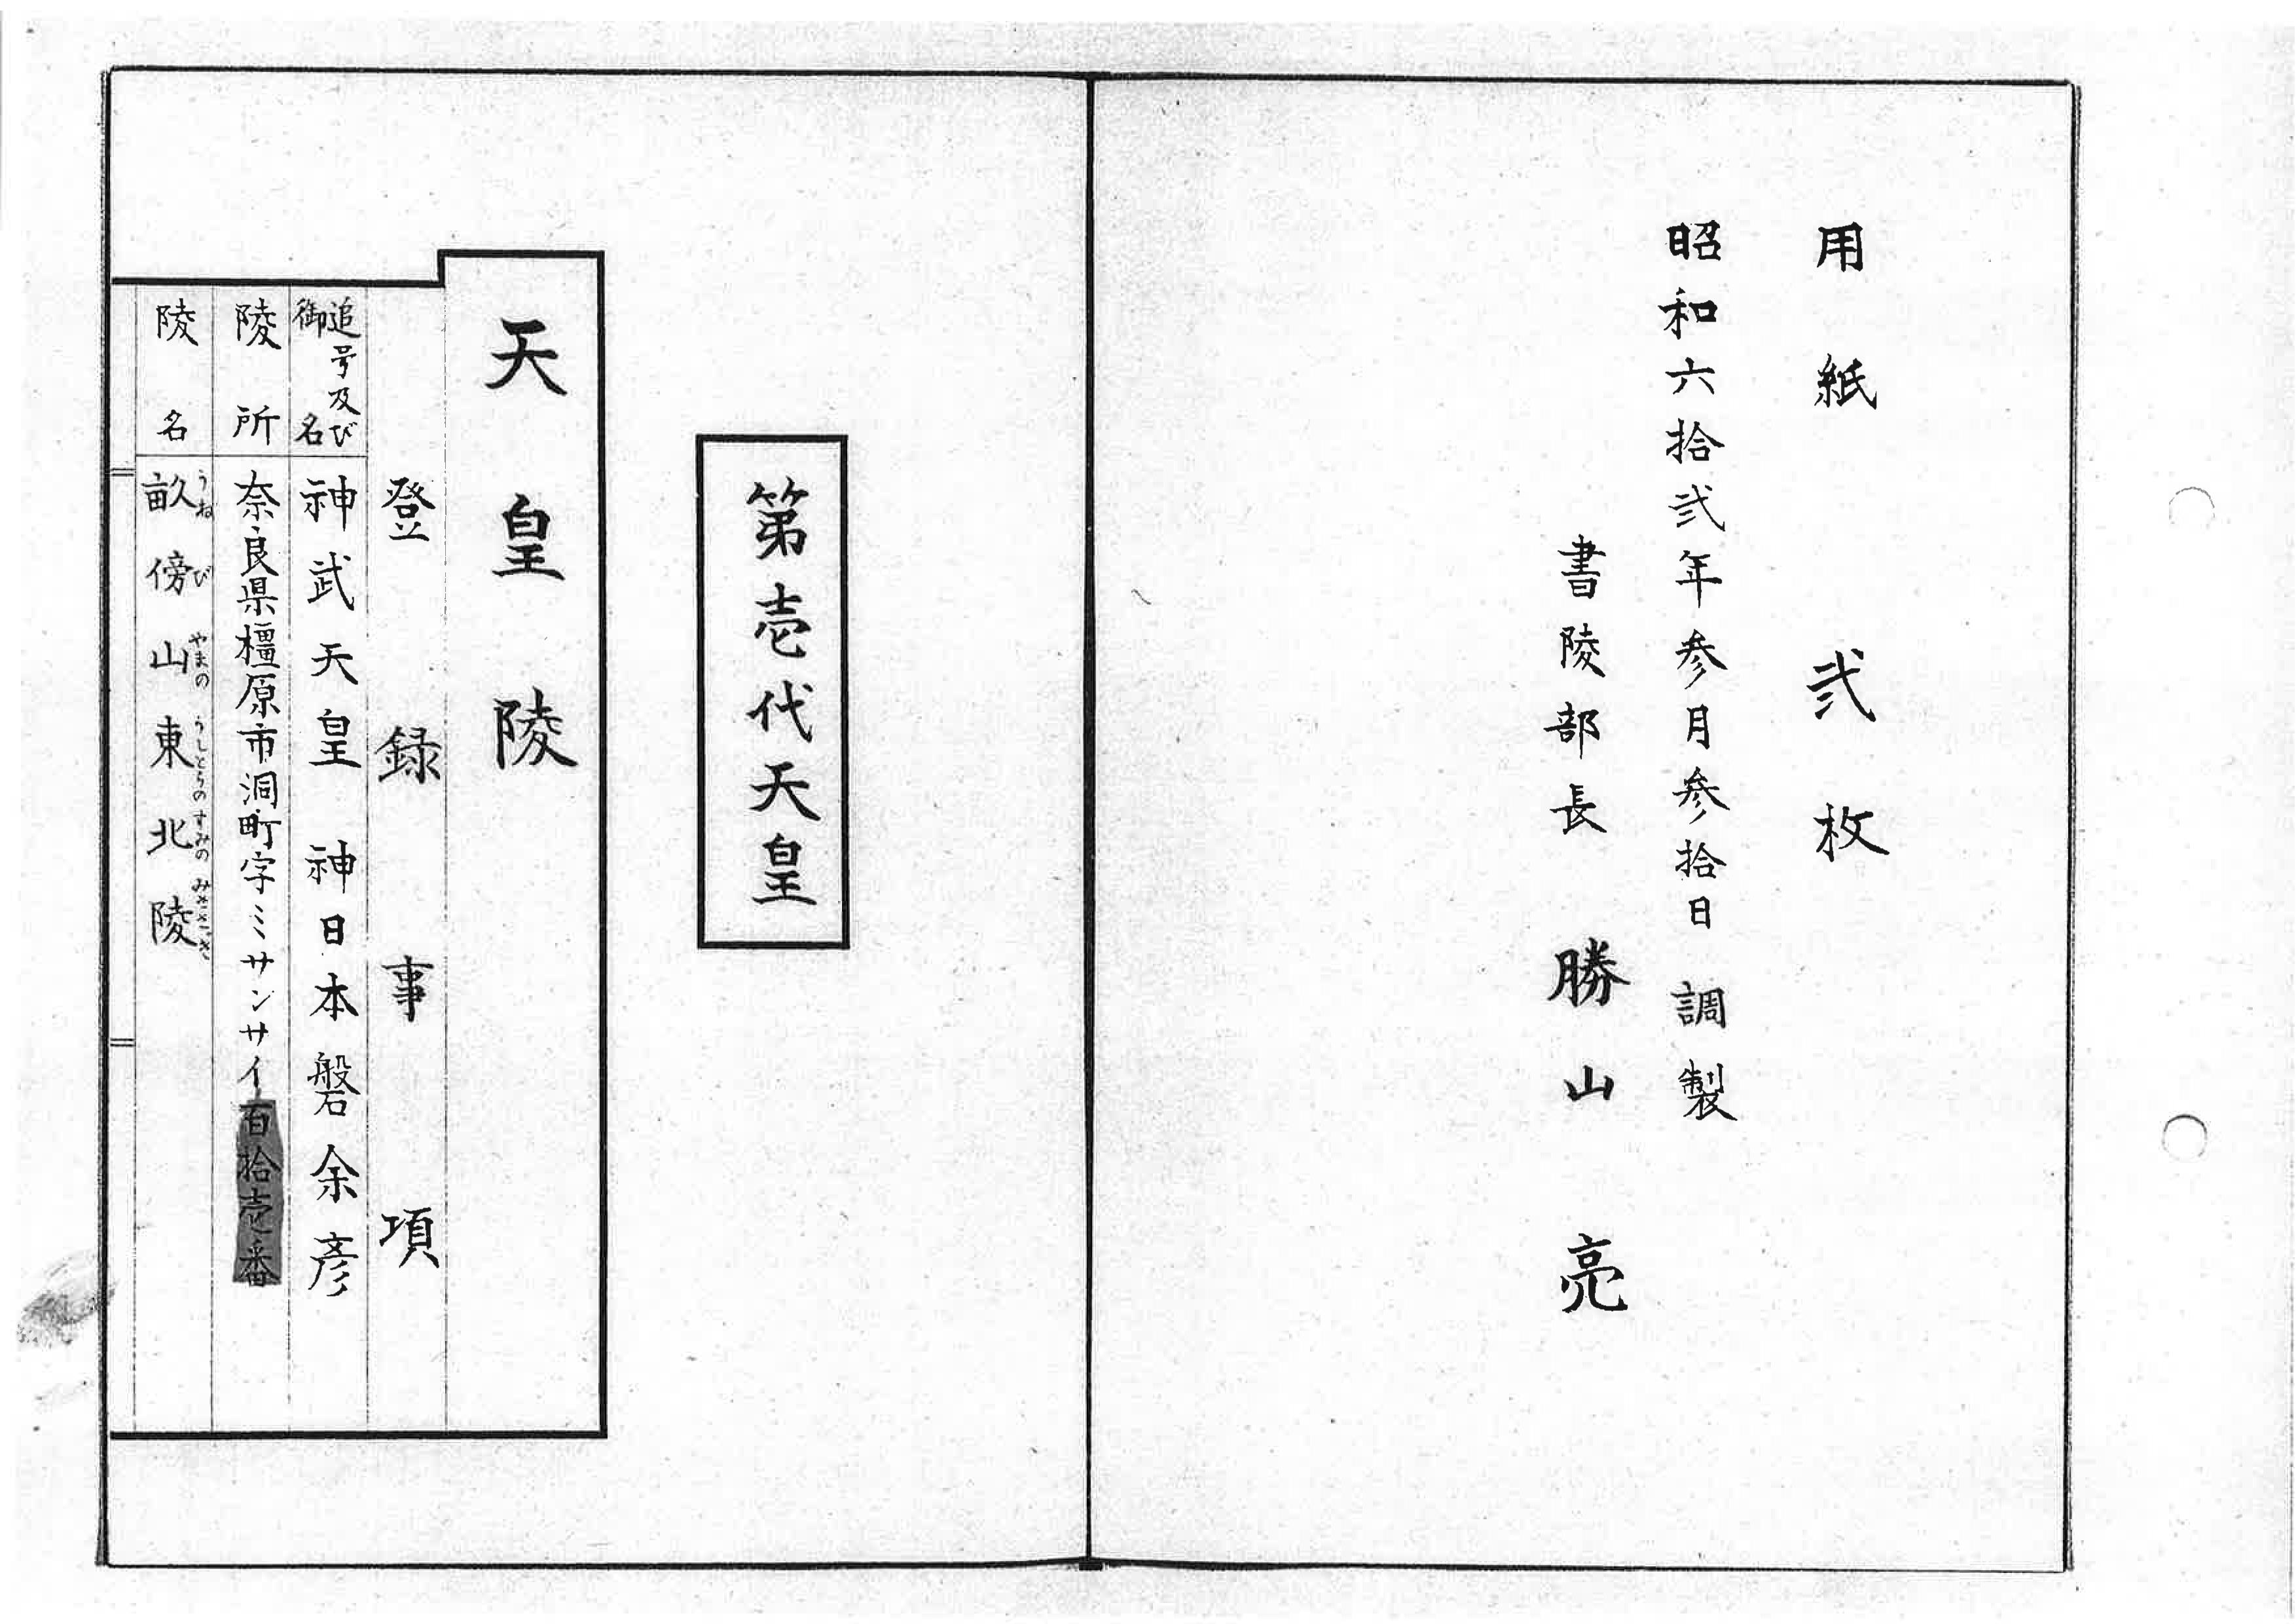 用紙 弐枚
昭和六拾弐年参月参拾日 調製
書陵部長 勝山 亮
第壱代天皇
天皇陵
登録事項
追号及び
御名
神武天皇 神日本磐余彦
陵所
奈良県橿原市洞町字ミサンサイ百拾壱番
陵名
畝傍山東北陵
うねび やまの うしとらの すみの みささぎ